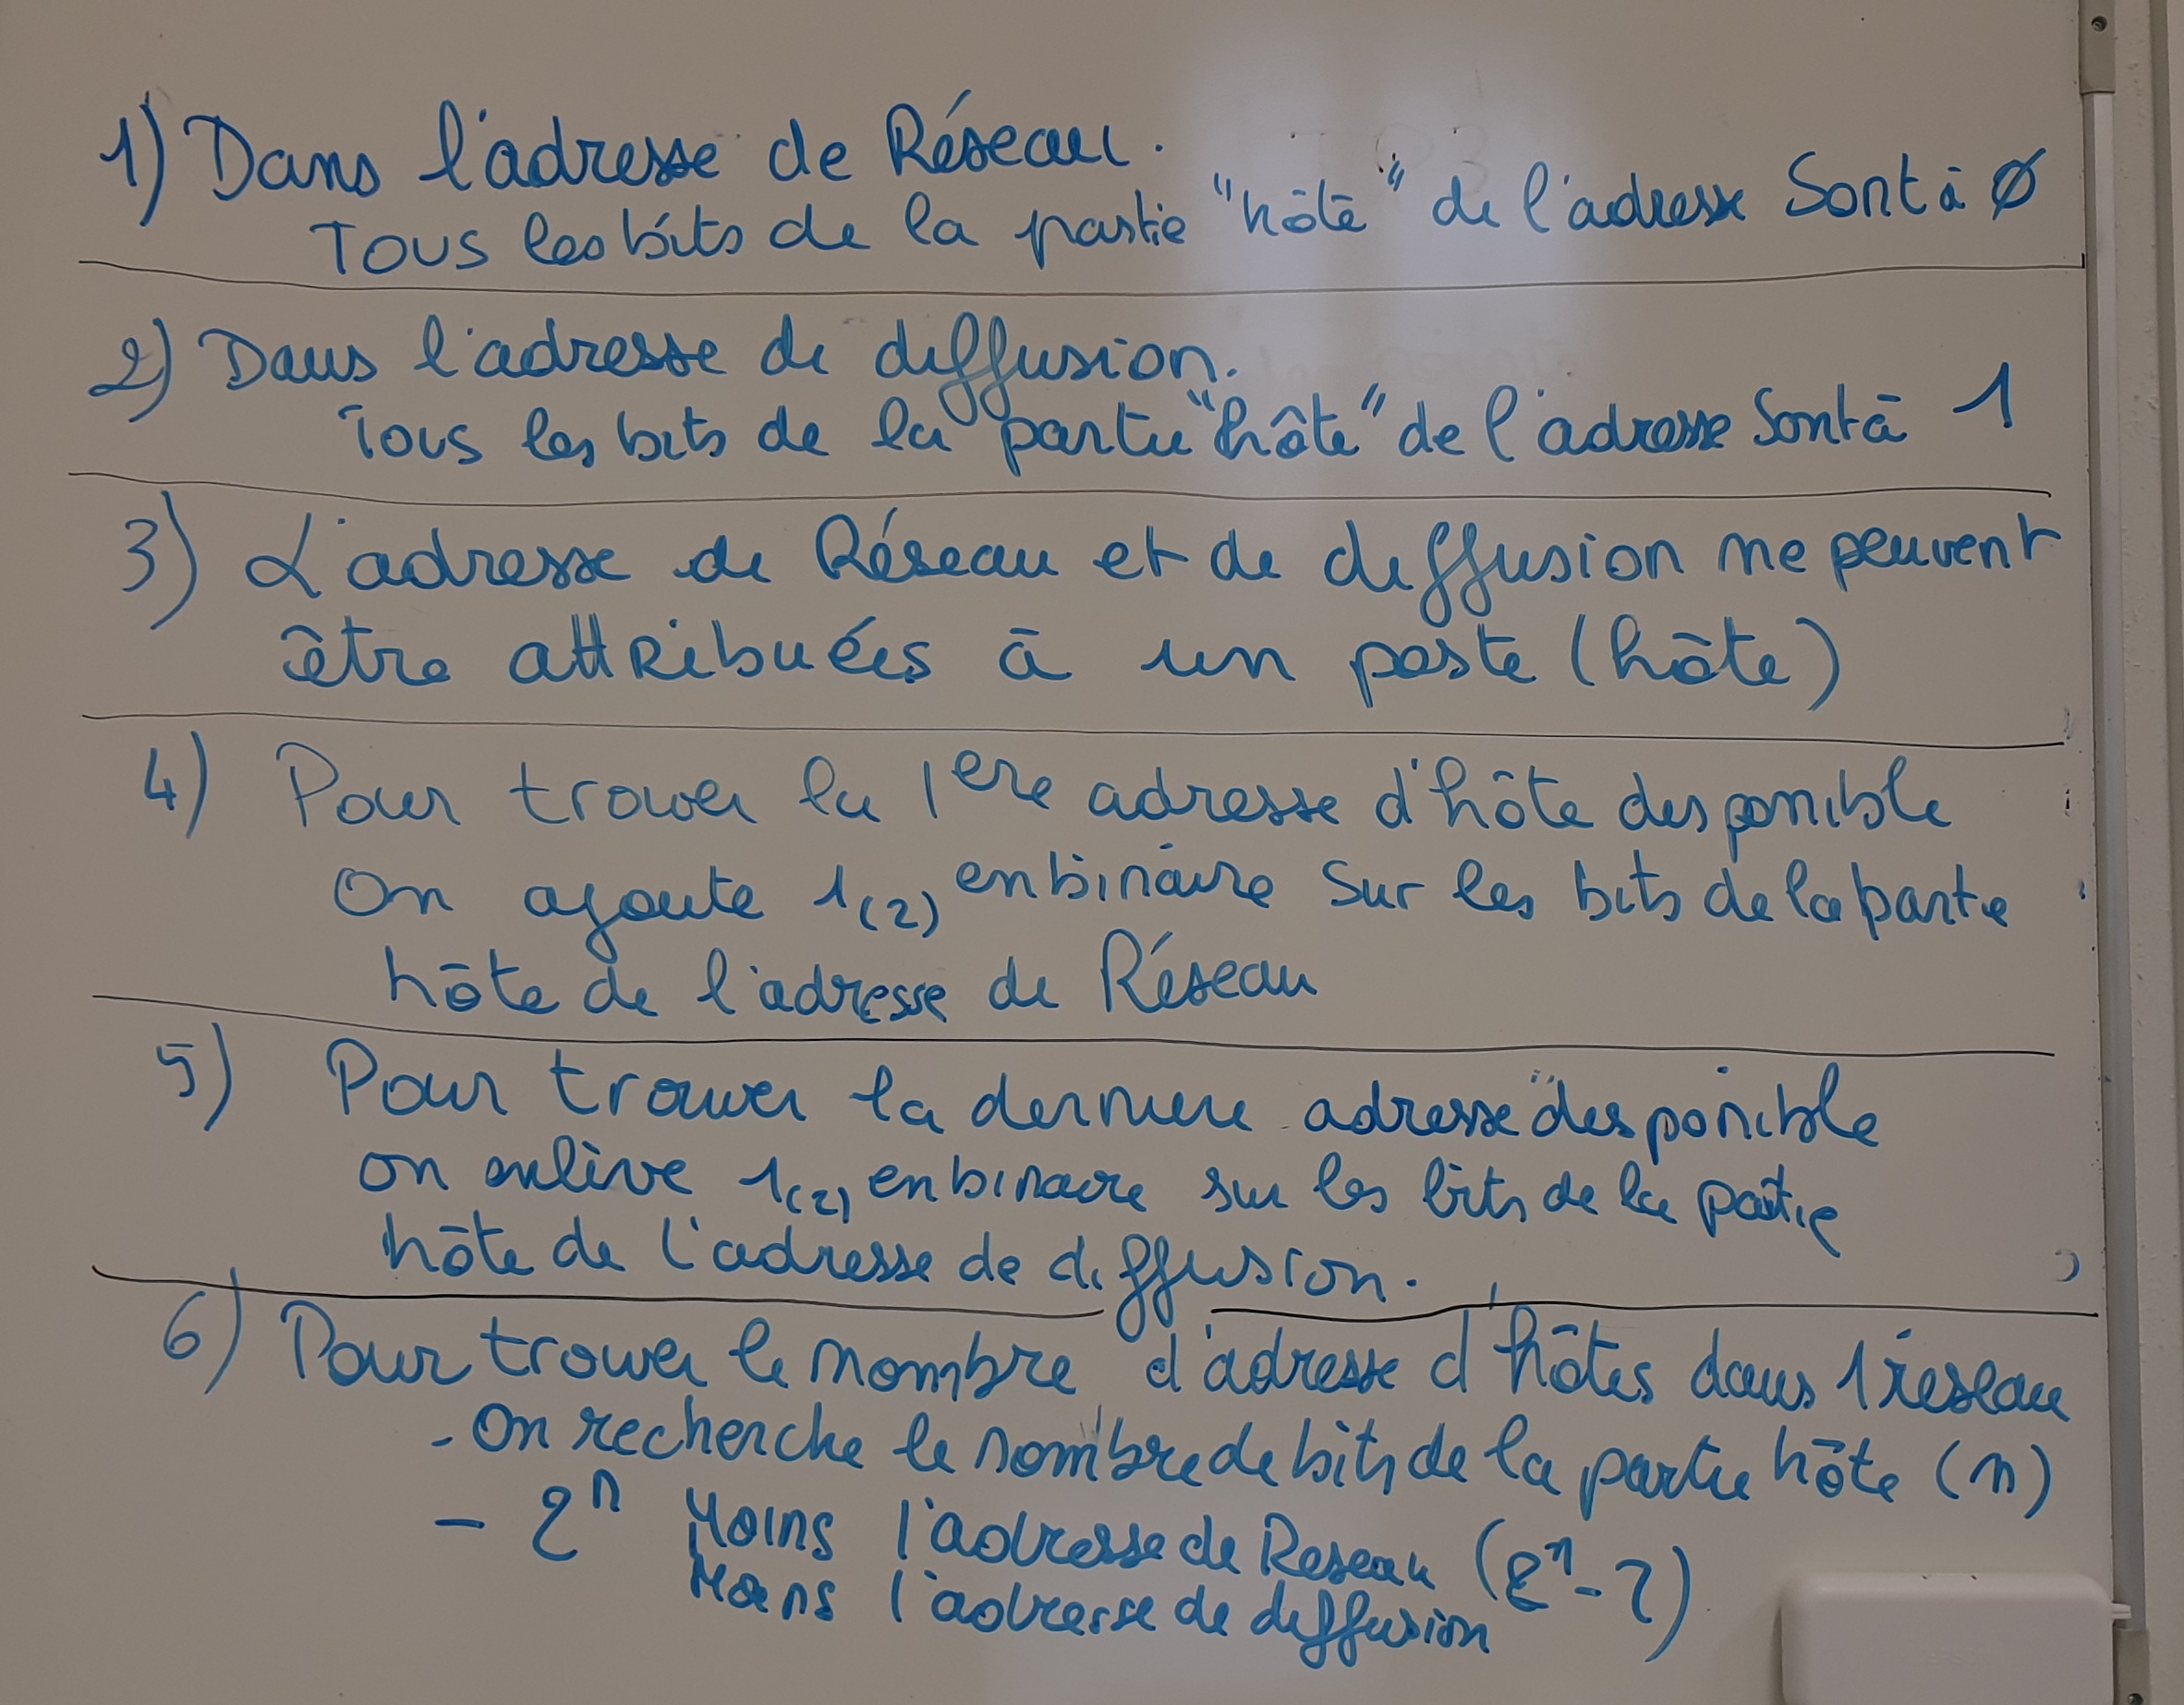 1) Dans l'adresse de Réseau.
Tous les bits de la partie "hôte" de l'adresse Sont à Ø
2) Dans l'adresse de diffusion.
Tous les bits de la partie "hôte" de l'adresse Sont à 1
3) L'adresse de Réseau et de diffusion ne peuvent
être attribuées à un poste (hôte)
4) Pour trouver la 1ere adresse d'hôte disponible
On ajoute 1(2) en binaire Sur les bits de la partie
hôte de l'adresse de Réseau
5) Pour trouver la derniere adresse disponible
on enlève 1(2) en binaire sur les bits de la partie
hôte de l'adresse de diffusion.
6) Pour trouver le nombre d'adresse d'hôtes dans 1 réseau
- On recherche le nombre de bits de la partie hôte (n)
- 2ⁿ Moins l'adresse de Reseau (2ⁿ-2)
Moins l'adresse de diffusion